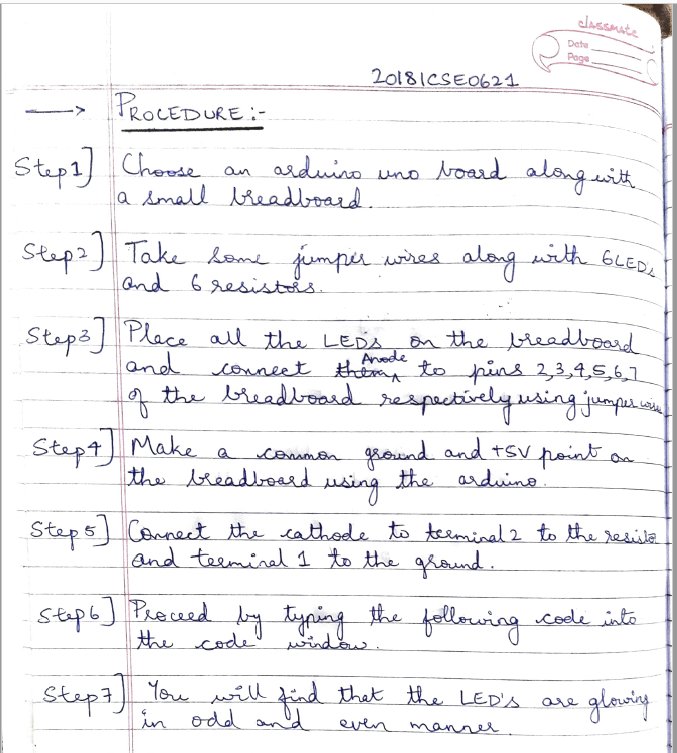 classmate
Date
Page
20181CSE0621
PROCEDURE:-
Step1] Choose an arduino uno board along with
a small breadboard.
Step2] Take some jumper wires along with 6LEDs
and 6 resistors.
Step3] Place all the LEDs on the breadboard
Anode
and connect them to pins 2,3,4,5,6,7
of the breadboard respectively using jumper wire
Step4] Make a common ground and +5V point on
the breadboard using the arduino.
Step5] Connect the cathode to terminal 2 to the resisto
and terminal 1 to the ground.
Step6] Proceed by typing the following code into
the code window.
Step7] You will find that the LED's are glowing
in odd and even manner.